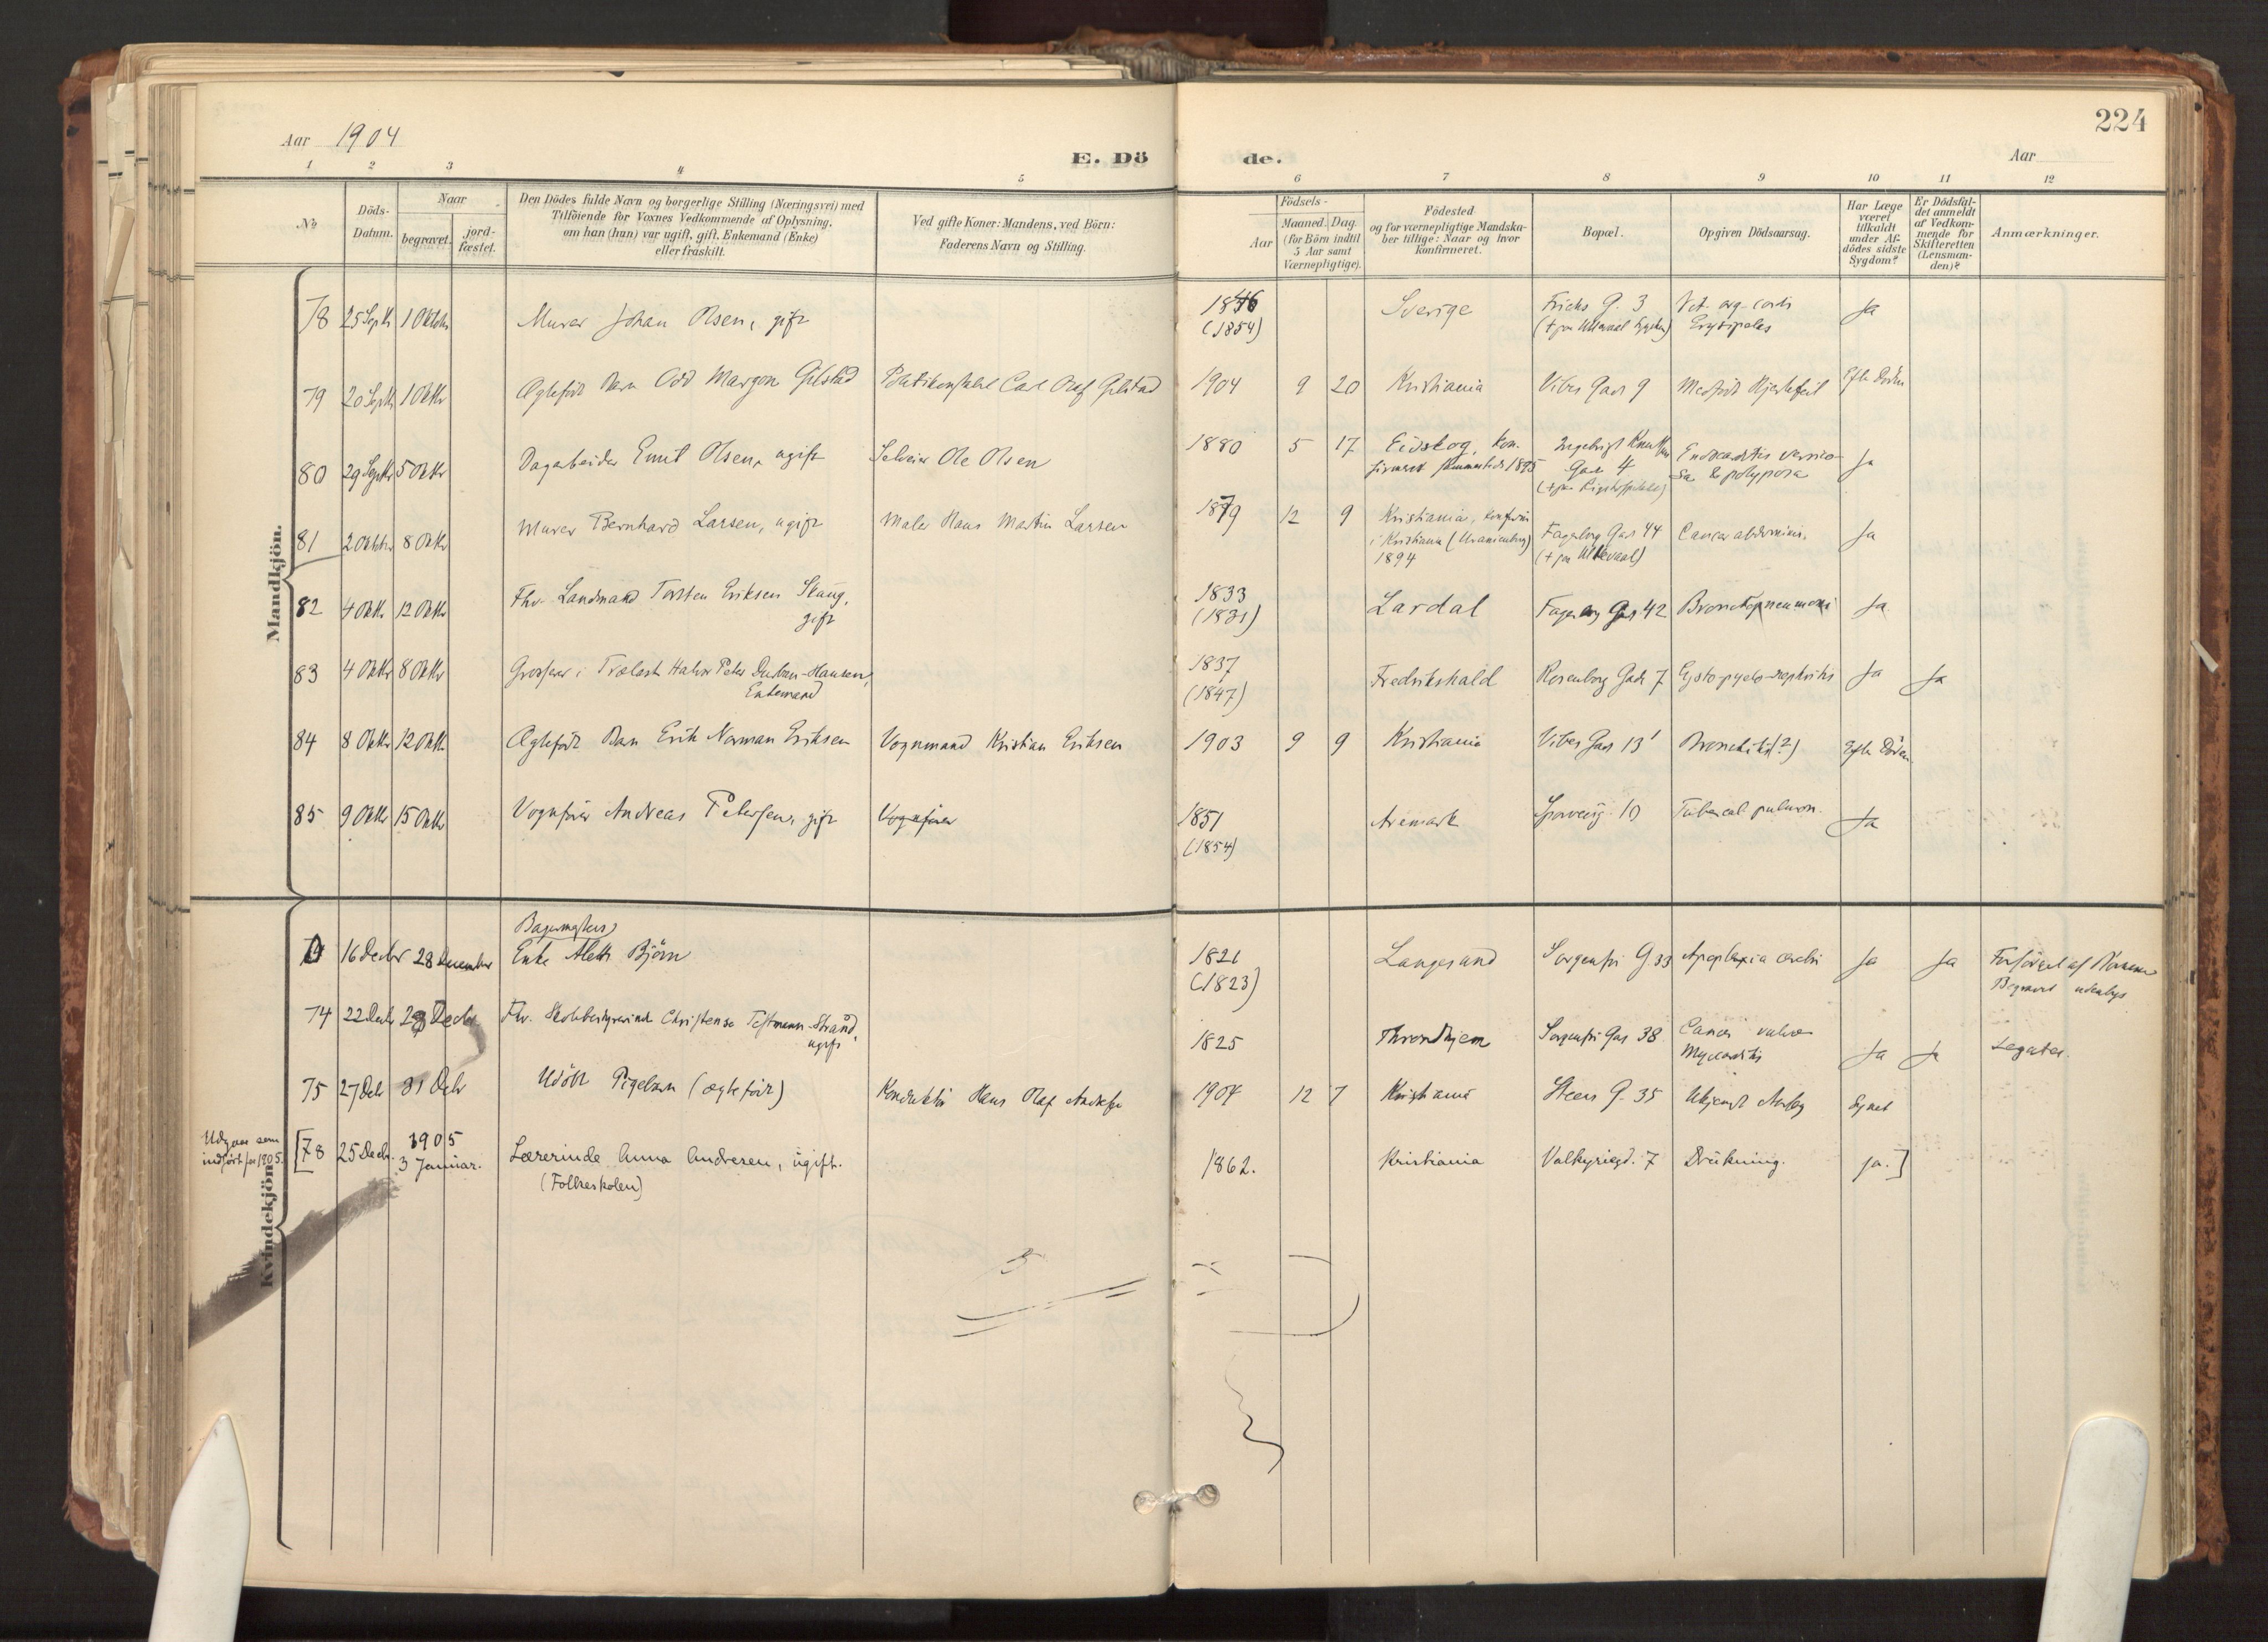 224
Aar 1904
E. Dö
de.
Aar
1 2 3 4 5 6 7 8 9 10 11 12
No
Döds-
Datum.
Naar
begravet.
jord-
fæstet.
Den Dödes fulde Navn og borgerlige Stilling (Næringsvei) med
Tilföiende for Voxnes Vedkommende af Oplysning,
om han (hun) var ugift, gift, Enkemand (Enke)
eller fraskilt.
Ved gifte Koner: Mandens, ved Börn:
Faderens Navn og Stilling.
Födsels-
Aar
Maaned. Dag.
(for Börn indtil
5 Aar samt
Værnepligtige).
Födested
og for værnepligtige Mandska-
ber tillige: Naar og hvor
konfirmeret.
Bopæl.
Opgiven Dödsaarsag.
Har Læge
været
tilkaldt
under Af-
dödes sidste
Sygdom?
Er Dödsfal-
det anmeldt
af Vedkom-
mende for
Skifteretten
(Lensman-
den)?
Anmærkninger.
Mandkjön.
78 25 Septr 1 Oktobr Murer Johan Olsen, gift 1846 Sverige Frichs G. 3 Vit. org. cordis Ja
(1854) (+ paa Ullevaal Sygehus) Erysipelas
79 20 Septr 1 Oktr Ægtefödt Barn Odd Margon Gilstad Politikonstabel Carl Olaf Gilstad 1904 9 20 Kristiania Vibes Gade 9 Medfödt Hjertefeil Efter Döden
80 29 Septr 5 Oktr Dagarbeider Emil Olsen, ugift Selveier Ole Olsen 1880 5 17 Eidskog, kon-
firmeret sammesteds 1895 Ingebrigt Knutsens
Gade 4
(+ paa Rigshospitalet) Endocarditis verruco-
sa & polyposa Ja
81 2 Oktober 8 Oktr Murer Bernhard Larsen, ugift Maler Hans Martin Larsen 1879 12 9 Kristiania, konfirm.
i Kristiania (Uranienborg)
1894 Fagerborg Gade 44
(+ paa Ullevaal) Cancer abdominis. Ja
82 4 Oktr 12 Oktr Fhv. Landmand Torsten Eriksen Skaug,
gift 1833
(1831) Lardal Fagerborg Gade 42 Bronchopneumoni Ja
83 4 Oktr 8 Oktr Grosserer i Trælast Halvor Peter Hansen,
Enkemand 1837
(1847) Fredrikshald Rosenborg Gade 7 Cysto-pyelo-nephritis Ja Ja
84 8 Oktr 12 Oktr Ægtefödt Barn Erik Norman Eriksen Vognmand Kristian Eriksen 1903 9 9 Kristiania Vibes Gade 13 Bronchitis (?) Efter Döden
85 9 Oktr 15 Oktr Vognfører Andreas Petersen, gift Vognfører 1851
(1854) Aremark Sporveisg. 10 Tubercul. pulmon. Ja
Kvindekjön.
Bagermesters
16 Decbr 28 December Enke Aleth Björn 1821
(1823) Langesund Sorgenfri G. 33 Apoplexia cerebri Ja Ja Forsörget af Börnene
Begravet udenbys
74 22 Decbr 29 Decbr Fhv. Skolebestyrerinde Christense Testmann-Strand,
ugift 1825 Throndhjem Sorgenfri Gade 38 Cancer vulvæ
Myocarditis Ja Ja Legater.
75 27 Decbr 31 Decbr Udöbt Pigebarn (ægtefödt) Konduktör Hans Olaf 1904 12 7 Kristiania Steens G. 35 Ukjendt Aarsag Synet
Udgaar som
indført for 1905. [78 25 Decbr. 1905
3 Januar. Lærerinde Anna Andresen, ugift.
(Folkeskolen) 1862. Kristiania Valkyriegd. 7 Drukning. ja.]